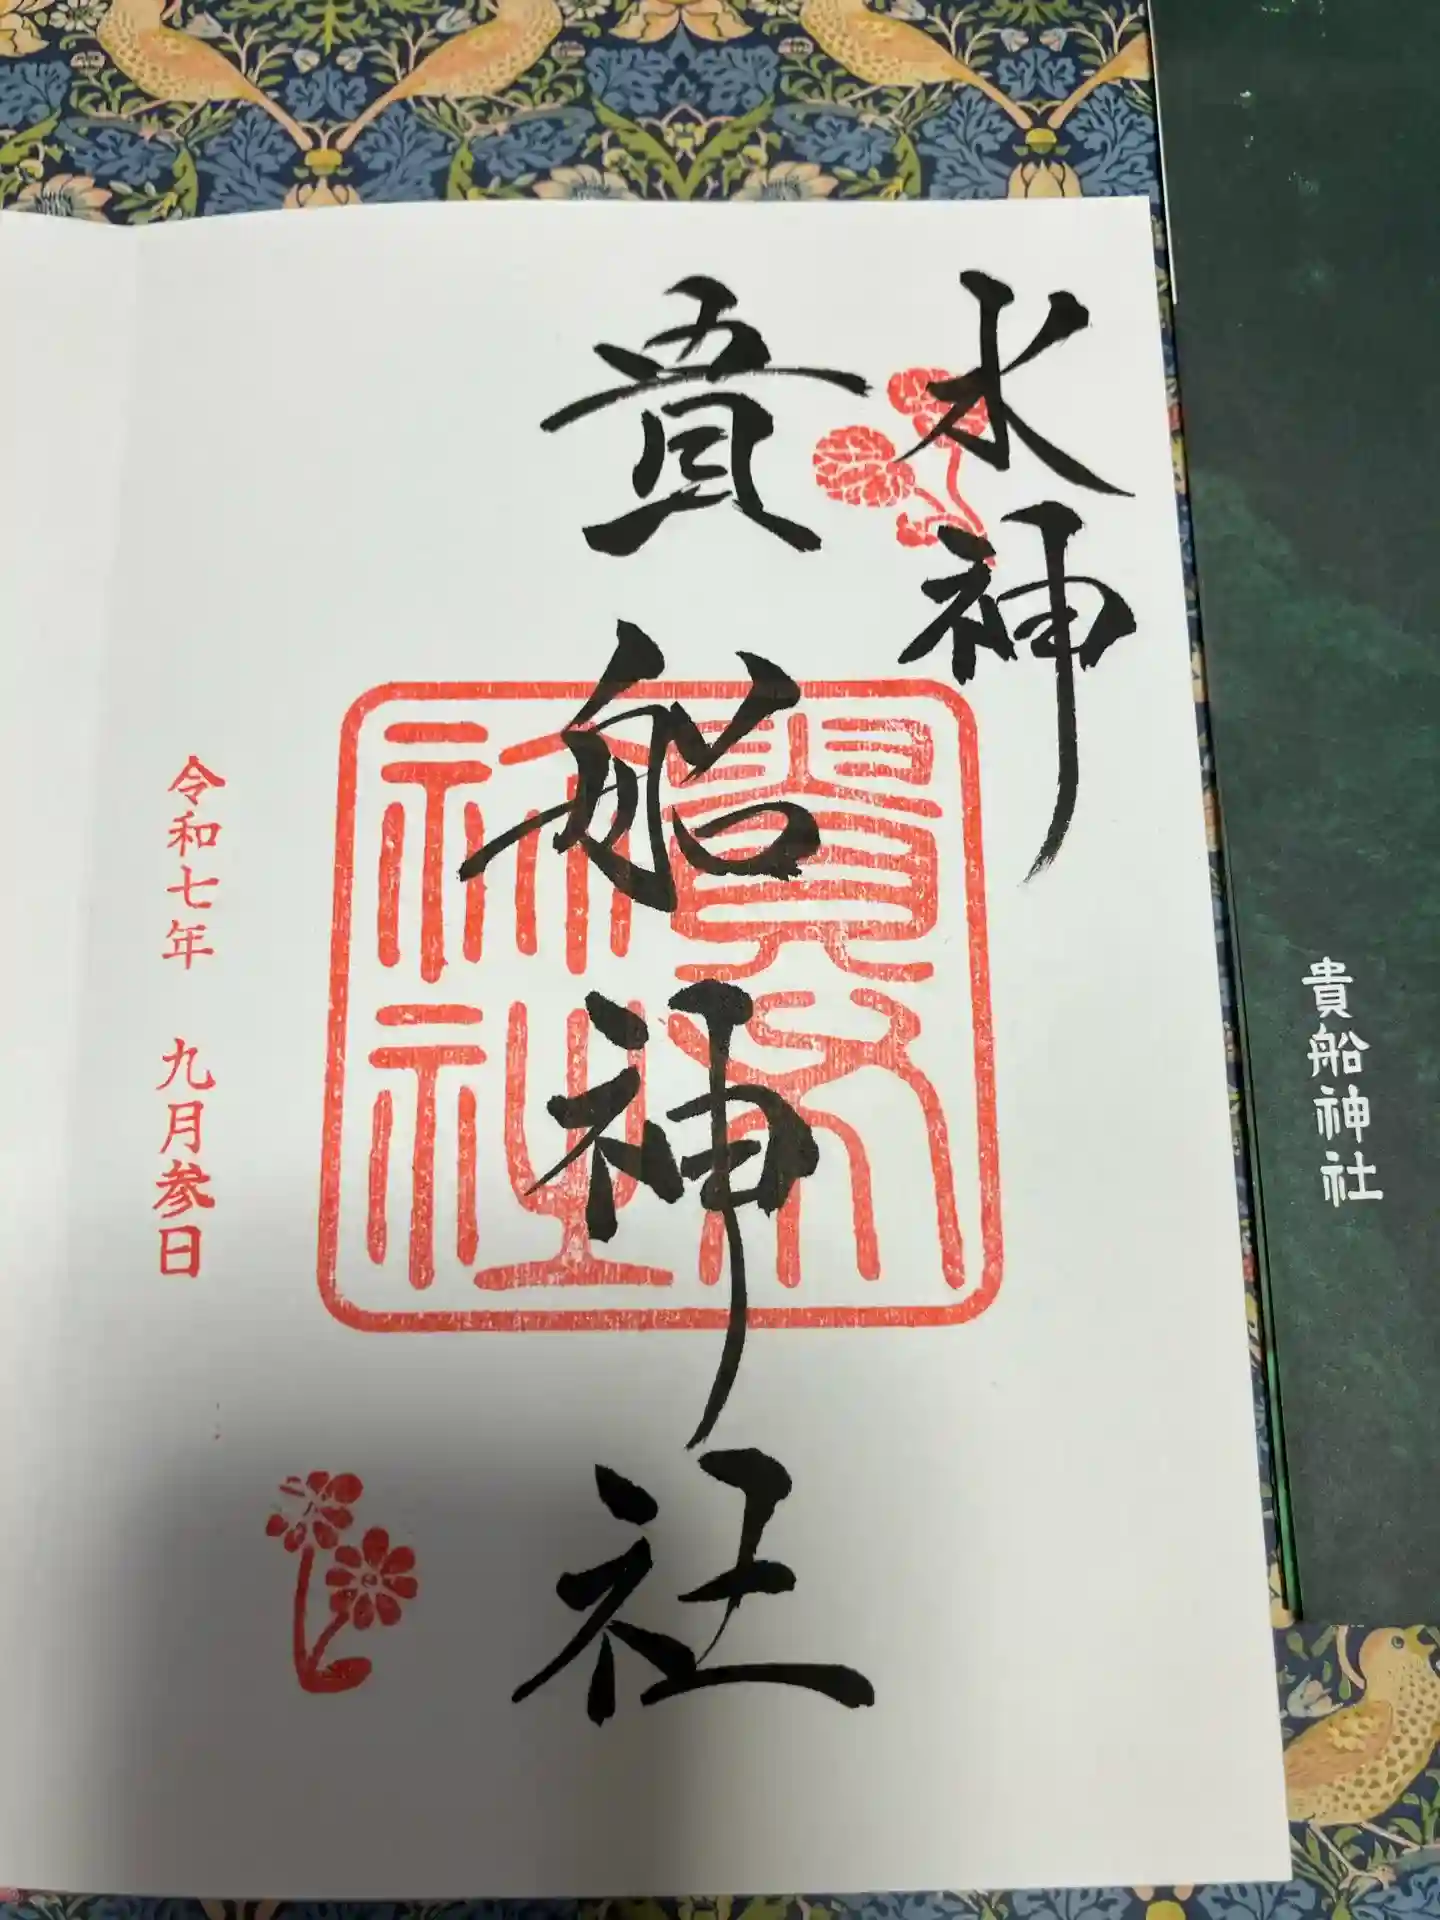 水神
貴船神社
貴船
神社
令和七年 九月参日
貴船神社